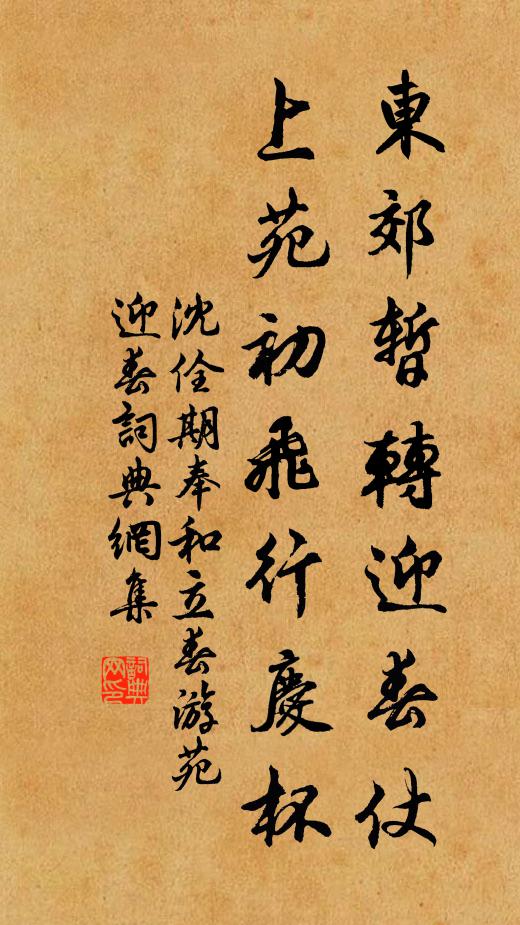 東郊暫轉迎春仗
上苑初飛行慶杯
沈佺期奉和立春游苑
迎春詞典網集
詞典网印